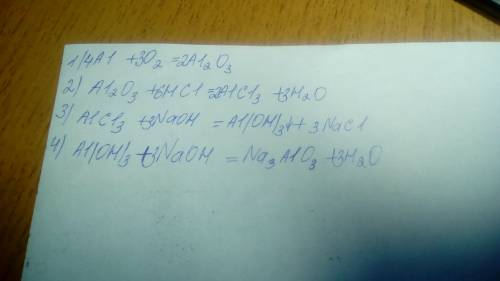 1) 4Al + 3O₂ = 2Al₂O₃
2) Al₂O₃ + 6HCl = 2AlCl₃ + 3H₂O
3) AlCl₃ + 3NaOH = Al(OH)₃↓ + 3NaCl
4) Al(OH)₃ + 3NaOH = Na₃AlO₃ + 3H₂O